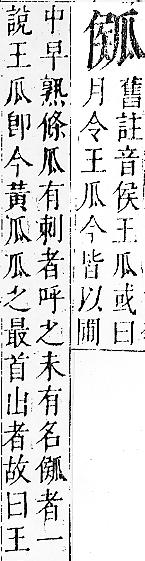 舊註音侯王瓜或曰
月令王瓜今皆以間
中早熟條瓜有刺者呼之未有名者一
說王瓜卽今黃瓜瓜之最首出者故曰王